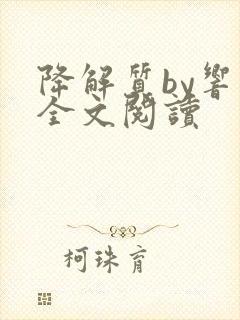 降解質by響
全文閱讀
柯珠育